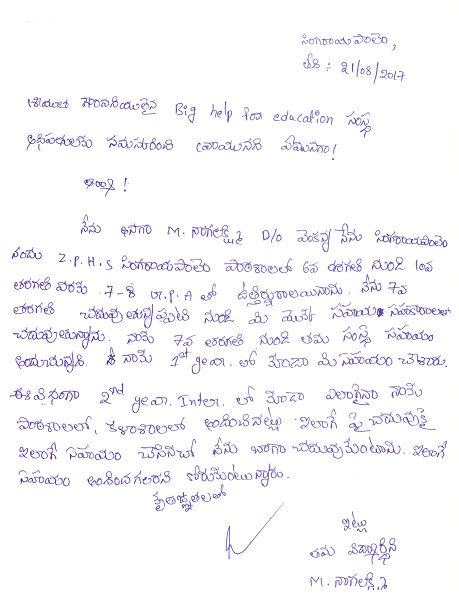 సింగరాయపాలెం,
తేది : 21/08/2017
శ్రీయుత గౌరవనీయులైన Big help for education సంస్థ
అధిపతులకు నమస్కరించి వ్రాయునది ఏమనగా!
ఆర్యా !
నేను అనగా M. నాగలక్ష్మి D/O వెంకన్న నేను సింగరాయపాలెం
నందు Z.P.H.S సింగరాయపాలెం పాఠశాలలో 6వ తరగతి నుండి 10వ
తరగతి వరకు 7-8 G.P.A లో ఉత్తీర్ణురాలయినాను. నేను 7వ
తరగతి చదువుతున్నప్పటి నుండి మీ యొక్క సహాయ సహకారాలతో
చదువుతున్నాను. నాకు 7వ తరగతి నుండి తమ సంస్థ సహాయం
అందుచున్నది. నాకు 1st year. లో కూడా మీ సహాయం చేశారు.
ఈ విధంగా 2nd year. Inter. లో కూడా ఎలాగైనా నాకు
పాఠశాలలో, కళాశాలలో అందించినట్లు ఇలాగే పై చదువుకై
ఇలాగే సహాయం చేసినచో నేను బాగా చదువుకుంటాను. ఇలాగే
సహాయం అందించగలరని కోరుకుంటున్నాను.
కృతజ్ఞతలతో
ఇట్లు
తమ విద్యార్థిని
M. నాగలక్ష్మి